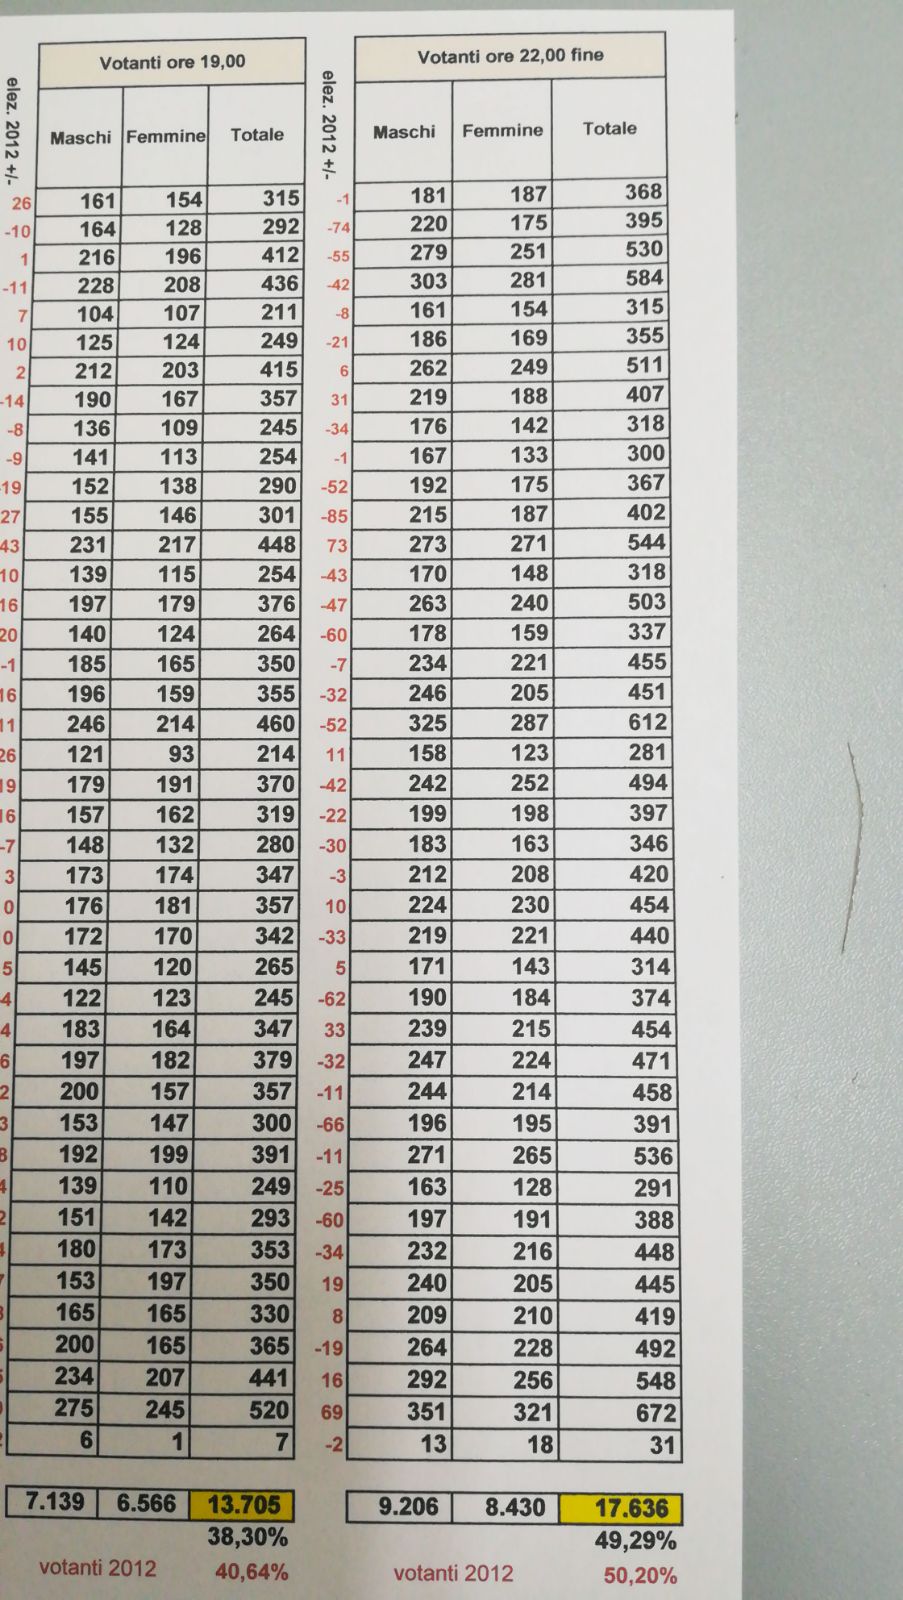 Votanti ore 19,00 Votanti ore 22,00 fine
elez. 2012 +/- Maschi Femmine Totale elez. 2012 +/- Maschi Femmine Totale
26 161 154 315 -1 181 187 368
-10 164 128 292 -74 220 175 395
1 216 196 412 -55 279 251 530
-11 228 208 436 -42 303 281 584
7 104 107 211 -8 161 154 315
10 125 124 249 -21 186 169 355
2 212 203 415 6 262 249 511
-14 190 167 357 31 219 188 407
-8 136 109 245 -34 176 142 318
-9 141 113 254 -1 167 133 300
-19 152 138 290 -52 192 175 367
27 155 146 301 -85 215 187 402
43 231 217 448 73 273 271 544
10 139 115 254 -43 170 148 318
16 197 179 376 -47 263 240 503
20 140 124 264 -60 178 159 337
-1 185 165 350 -7 234 221 455
16 196 159 355 -32 246 205 451
11 246 214 460 -52 325 287 612
26 121 93 214 11 158 123 281
19 179 191 370 -42 242 252 494
16 157 162 319 -22 199 198 397
-7 148 132 280 -30 183 163 346
3 173 174 347 -3 212 208 420
0 176 181 357 10 224 230 454
0 172 170 342 -33 219 221 440
5 145 120 265 5 171 143 314
4 122 123 245 -62 190 184 374
4 183 164 347 33 239 215 454
6 197 182 379 -32 247 224 471
2 200 157 357 -11 244 214 458
3 153 147 300 -66 196 195 391
8 192 199 391 -11 271 265 536
4 139 110 249 -25 163 128 291
2 151 142 293 -60 197 191 388
180 173 353 -34 232 216 448
153 197 350 19 240 205 445
165 165 330 8 209 210 419
200 165 365 -19 264 228 492
234 207 441 16 292 256 548
275 245 520 69 351 321 672
6 1 7 -2 13 18 31
7.139 6.566 13.705 9.206 8.430 17.636
38,30% 49,29%
votanti 2012 40,64% votanti 2012 50,20%